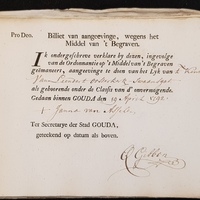 Pro Deo. Billiet van aangeevinge, wegens het
Middel van 't Begraven.
IK ondergeschreve verklare by dezen, ingevolge
van de Ordonnantie op 't Middel van 't Begraven
geëmaneert, aangevinge te doen van het Lyk van 't kind
van
als gehoorende onder de Classis van de onvermogende.
Gedaan binnen GOUDA den 19 April
Janna van
Ter Secretarye der Stad GOUDA,
geteekend op datum als boven.